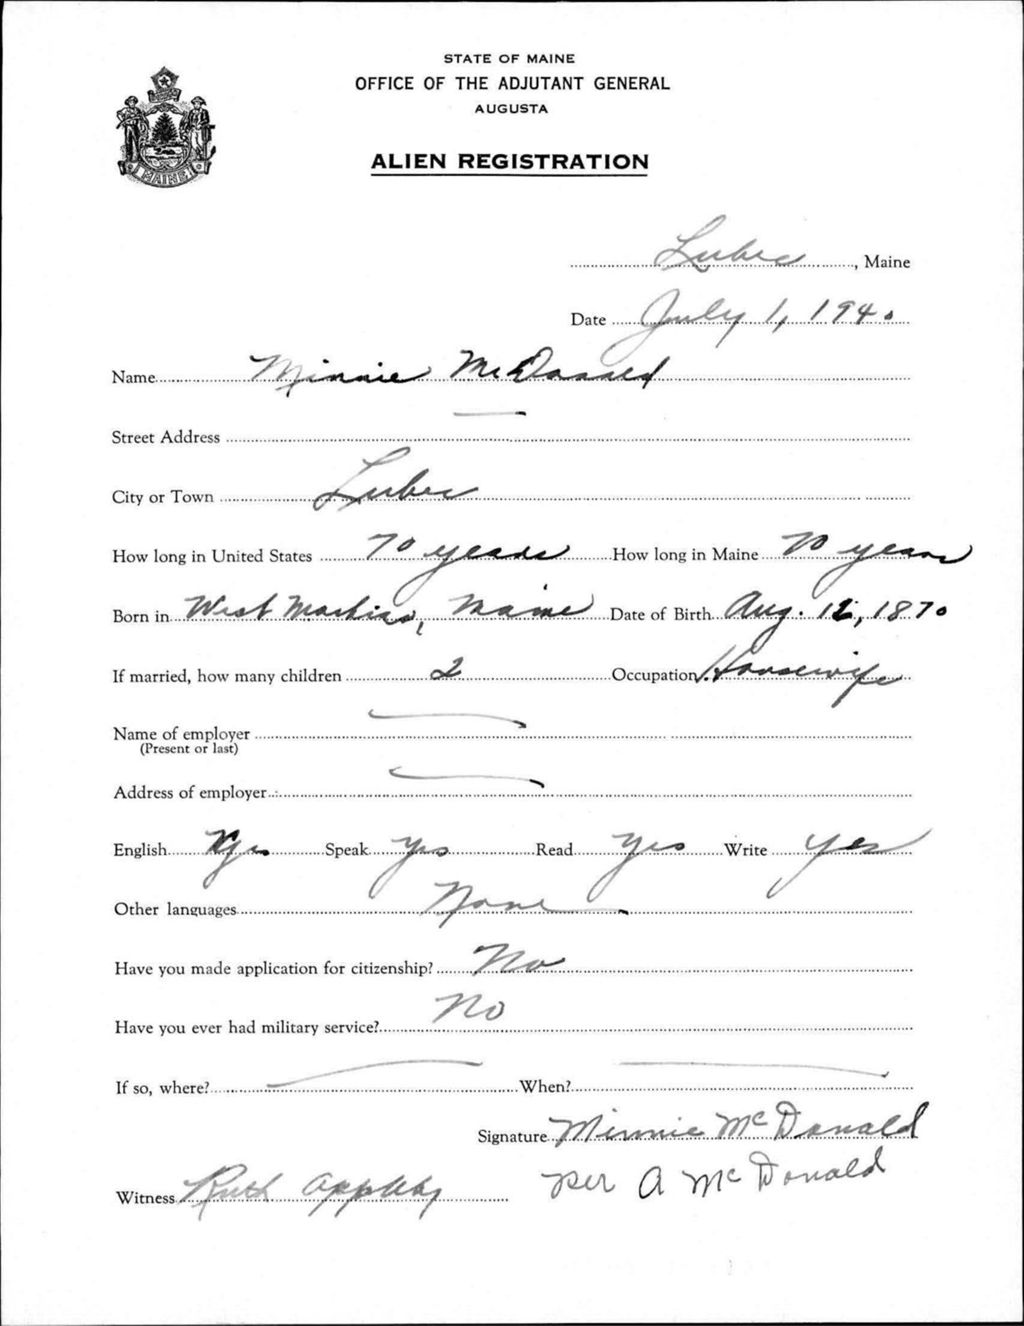 STATE OF MAINE
OFFICE OF THE ADJUTANT GENERAL
AUGUSTA
ALIEN REGISTRATION
MAINE
Lubec, Maine
Date July 1, 1940
Name Minnie McDonald
Street Address
City or Town Lubec
How long in United States 70 years How long in Maine 70 years
Born in West Machias, Maine Date of Birth Aug. 12, 1870
If married, how many children 2 Occupation Housewife
Name of employer
(Present or last)
Address of employer
English Yes Speak Yes Read Yes Write Yes
Other languages None
Have you made application for citizenship? No
Have you ever had military service? No
If so, where? When?
Signature Minnie McDonald
Witness Ruth Appleby per A McDonald